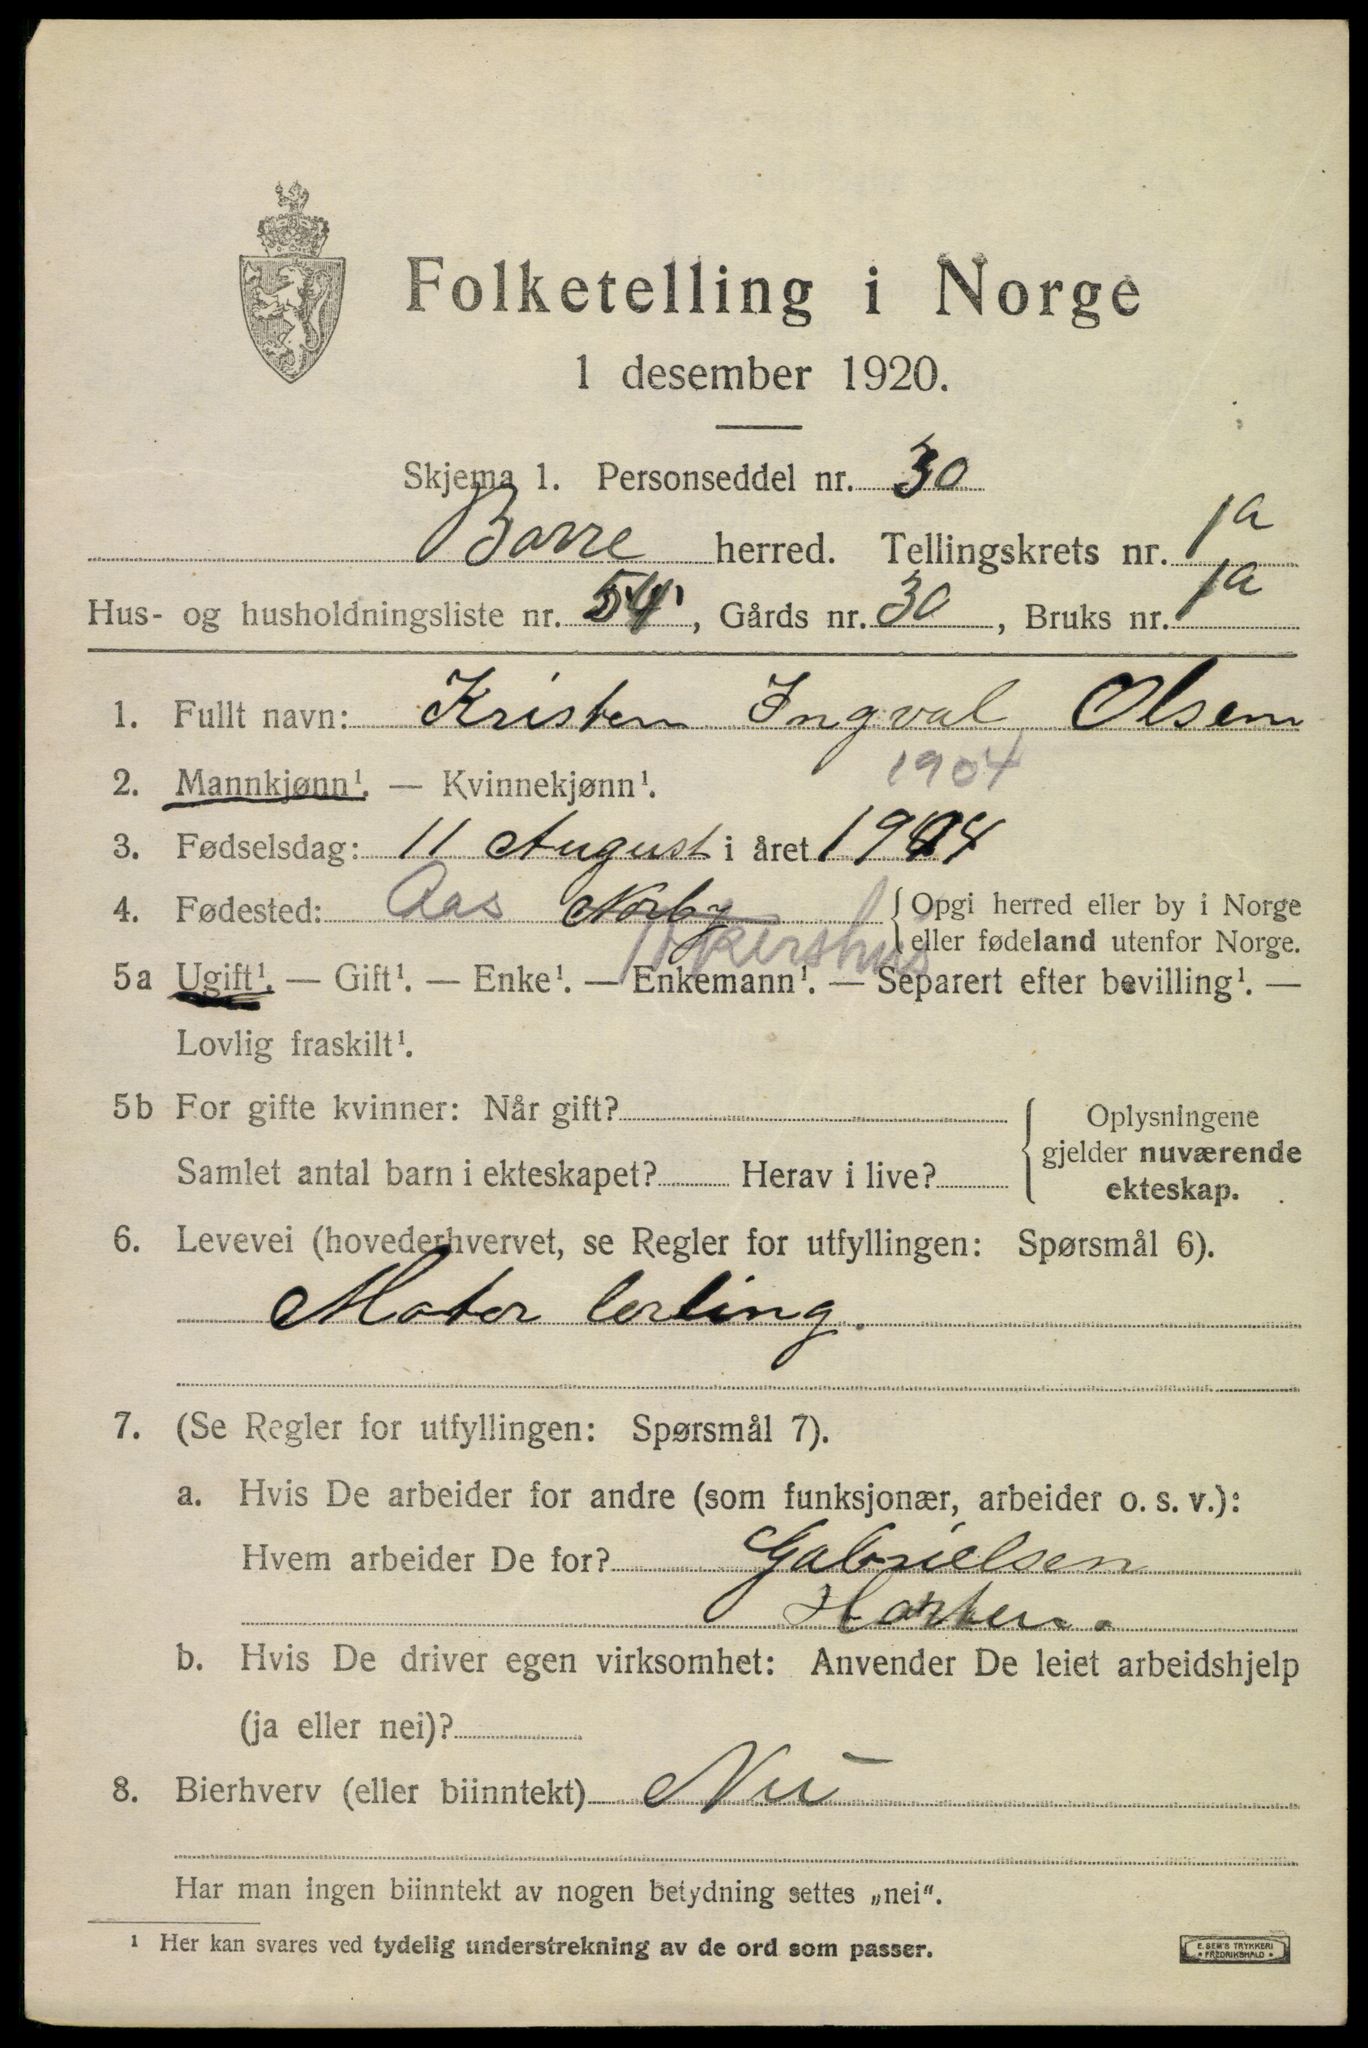 Folketelling i Norge
1 desember 1920.
Skjema 1. Personseddel nr. 30
Borre herred. Tellingskrets nr. 1a
Hus- og husholdningsliste nr. 54, Gårds nr. 30, Bruks nr. 1a
1. Fullt navn: Kristen Ingval Olsen
1904
2. Mannkjønn¹. — Kvinnekjønn¹.
3. Fødselsdag: 11 August i året 1904
4. Fødested: Aas Norby Akershus { Opgi herred eller by i Norge
eller fødeland utenfor Norge.
5a Ugift¹. — Gift¹. — Enke¹. — Enkemann¹. — Separert efter bevilling¹. —
Lovlig fraskilt¹.
5b For gifte kvinner: Når gift? { Oplysningene
gjelder nuværende
Samlet antal barn i ekteskapet? Herav i live? ekteskap.
6. Levevei (hovederhvervet, se Regler for utfyllingen: Spørsmål 6).
Motor lerling.
7. (Se Regler for utfyllingen: Spørsmål 7).
a. Hvis De arbeider for andre (som funksjonær, arbeider o. s. v.):
Hvem arbeider De for? Gabrielsen
Horten.
b. Hvis De driver egen virksomhet: Anvender De leiet arbeidshjelp
(ja eller nei)?
8. Bierhverv (eller biinntekt) Nei
Har man ingen biinntekt av nogen betydning settes „nei".
¹ Her kan svares ved tydelig understrekning av de ord som passer.
E. SEM'S TRYKKERI
* FREDRIKSHALD *